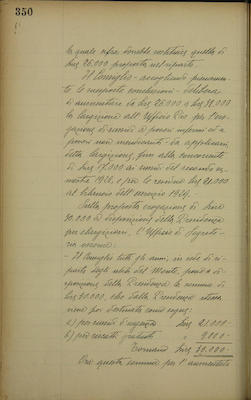 350
la quale cifra dovrebbe sostituire quella di
Lire 25.000 proposta nel riparto.
Il Consiglio - accogliendo pienamen-
te le sue proposte conclusioni - delibera
di aumentare da Lire 25.000 a Lire 38.000
la largizione all'Ufficio Pio per l'ero-
gazione di sussidi a poveri infermi ed a
poveri non mendicanti - da applicarsi
detta largizione, fino alla concorrenza
di Lire 17.000 ai del secondo se-
mestre 1928, e per le residue Lire 21.000
al bilancio dell'esercizio 1929.
Sulla proposta erogazione di Lire
30.000 a disposizione della Presidenza
per elargizioni, l'Ufficio di Segrete-
ria osserva:
- Il Consiglio tutti gli anni, in sede di ri-
parto degli utili del Monte, pone a di-
sposizione della Presidenza la somma di
Lire 30.000, che dalla Presidenza
viene poi destinata come segue:
a) per sussidi d'urgenza Lire 21.000 -
b) per riscatti gratuiti " 9.000 -
Tornano Lire 30.000 -
Ora questa somma per l'aumentato